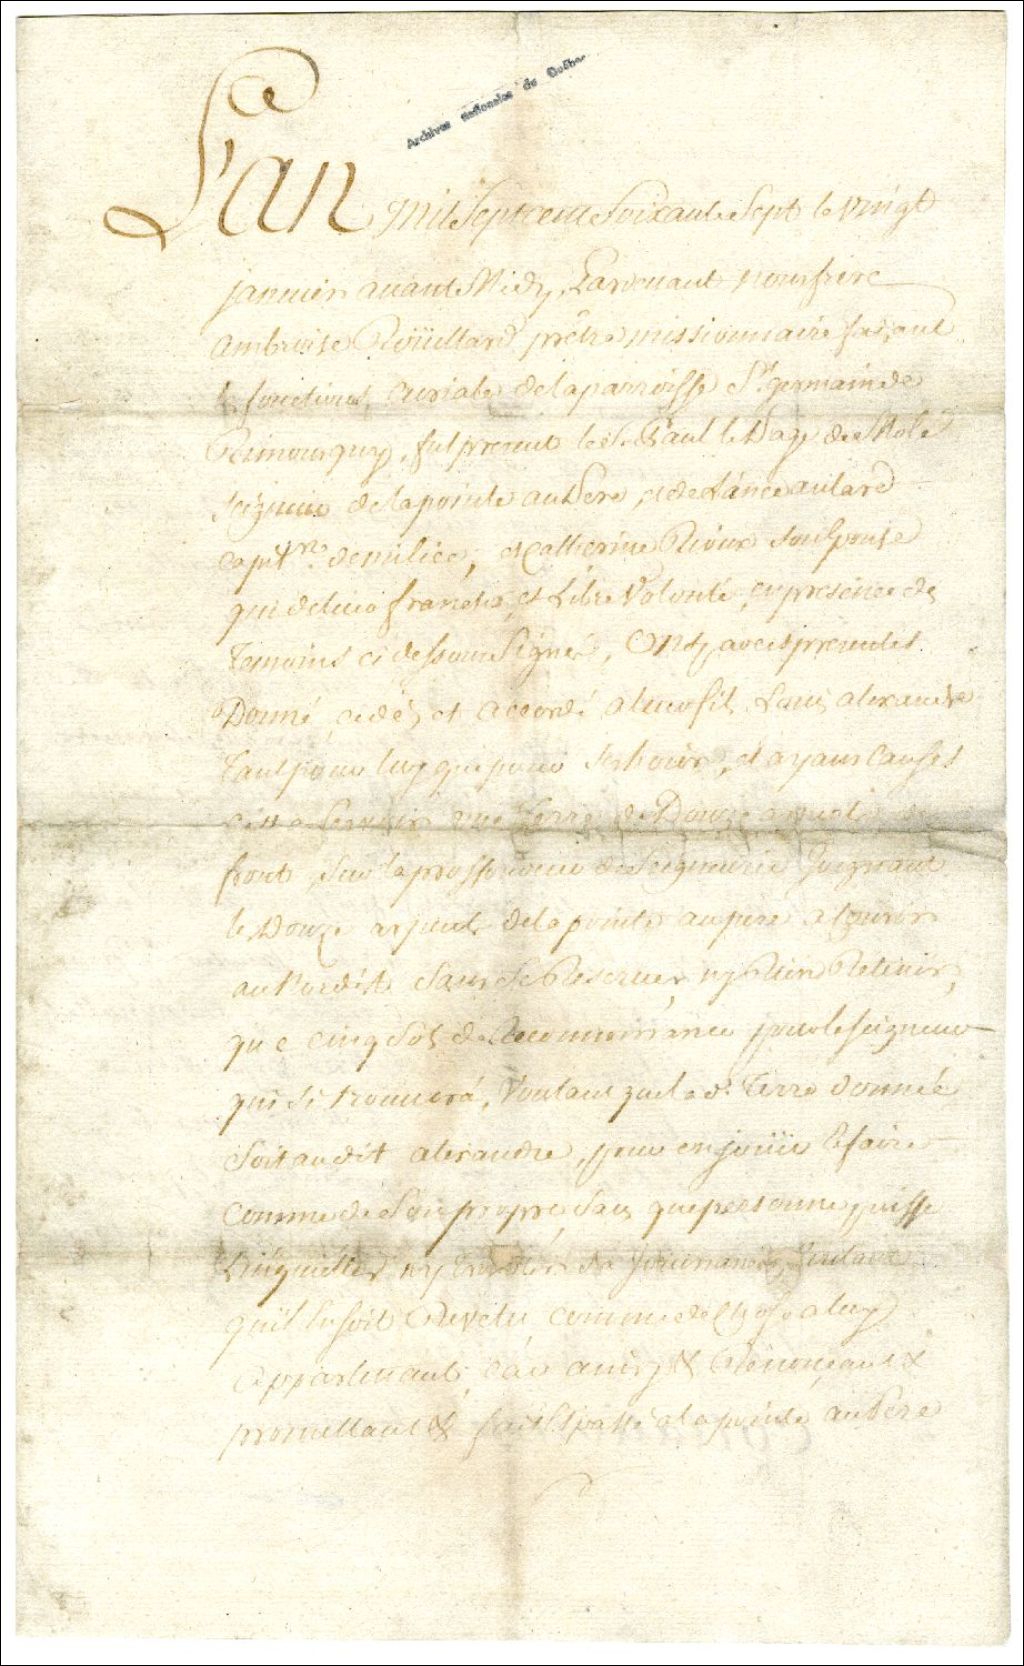 Archives nationales du Québec
L'an mil Septcent Soixante Sept le vingt
januier auant Midy, Pardeuant nous frere
ambroise Roüillard prêtre missionnaire faisant
les fonctions Curiales de la parroisse St. germain de
Rimousquy, fut present le Sr. Paul le Page de Molé
seigneur de la pointe au Pere, et de L'ance au lard
Capt. de milice, et Catherine Rioux Son Epouse
qui de leur franche, et Libre Volonté, en presence des
Temoins ci dessous Signés, Ont, par ces presentes
Donné, cedé, et accordé a leur fils Louis alexandre
Tant pour luy que pour ses hoirs, et ayans Causes
une Terre de Douze arpents de
front, Sur la proffondeur de Seigneurie Joignant
les Douze arpents de la pointe au pere a Courir
au Nordêst Sans Se Reseruer, ny Rien Retenir,
que cinq Sols de Reconnoissance pour le seigneur
qui s'i trouuera, Voulant que la de. Terre donnée
Soit au dit alexandre, pour en joüir & faire
comme de Son propre, Sans que personne puisse
L'inquietter ny troubler Sa Joüissance, Voulant
qu'il En Soit Revêtu comme de chose a luy
Appartenant, Car ainsy & Rénonçant &
promettant & fait & passé a la pointe au Pere